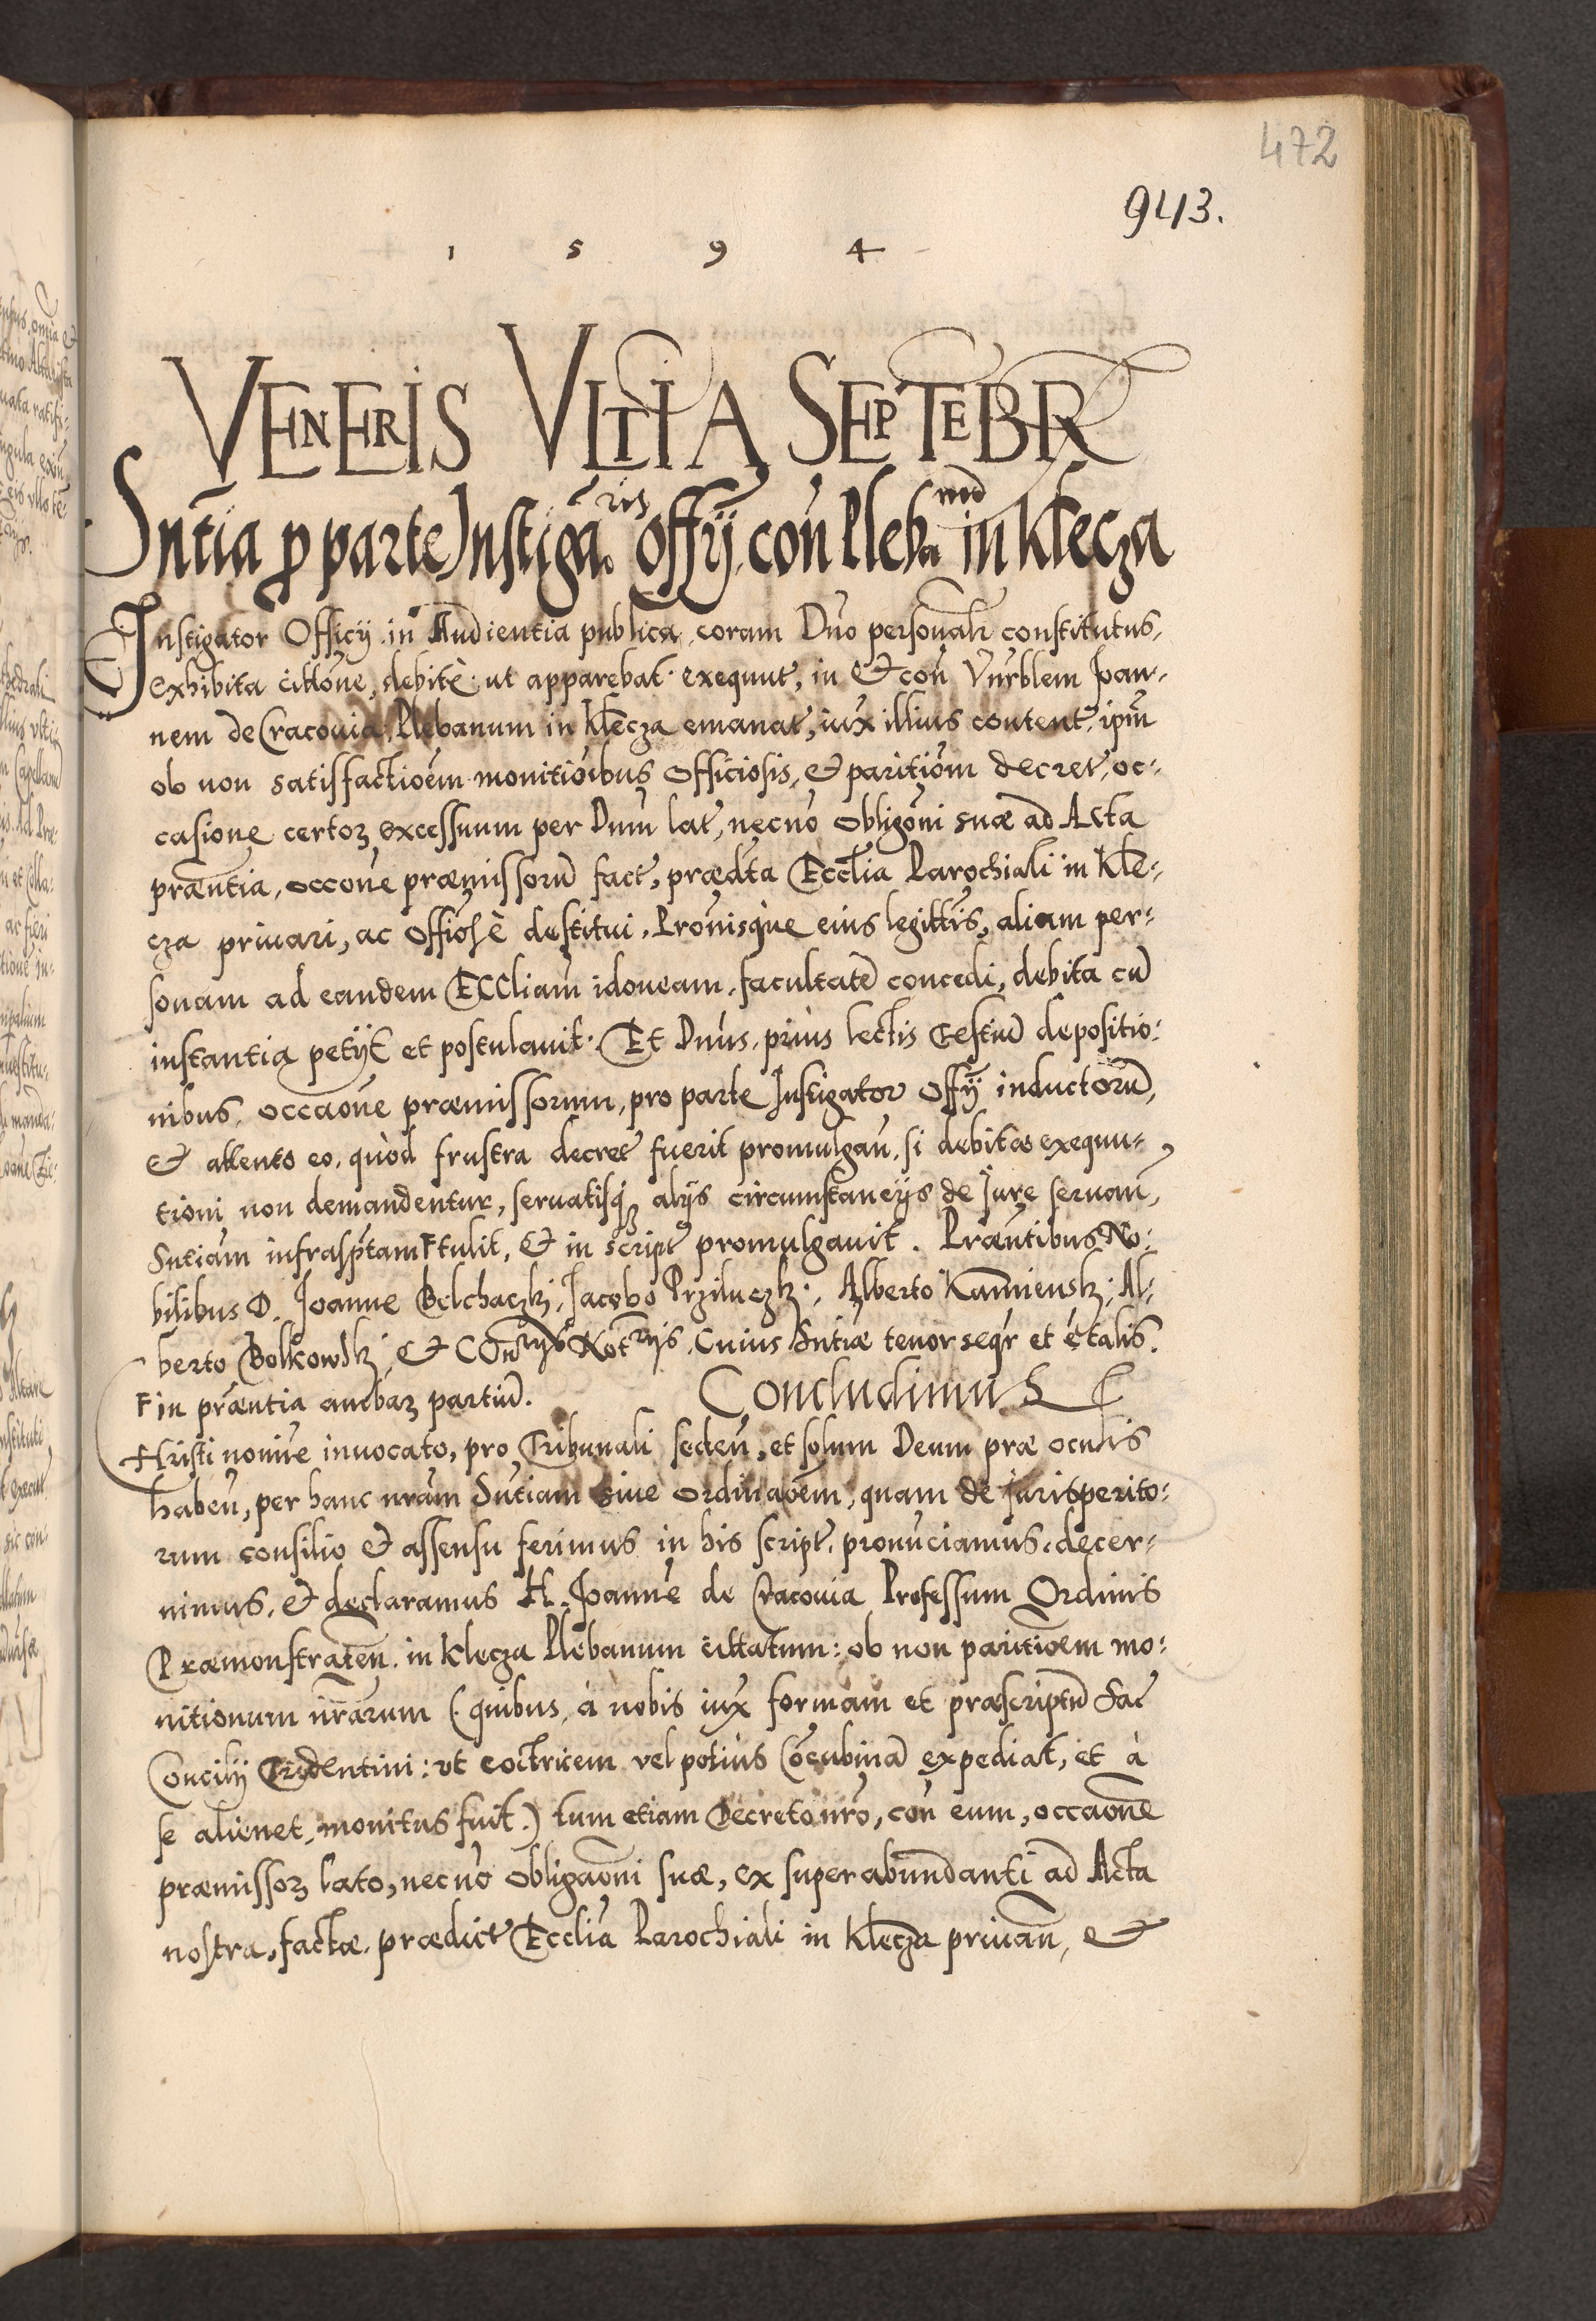 472
943.
1 5 9 4
VENERIS VLTIA SEPTEBR
Sntia p parte Instiga.ris Offÿ con Pleb.num in Klecza
Instigator Officÿ in Audientia publica, coram Dno personalr constitutus,
exhibita cittone, debitè ut apparebat exequut, in & con Vnrblem Joan-
nem de Cracouia, Plebanum in Klecza emanat, iux illius content, ipm
ob non satisfactioem monitionibus Officiosis, & paritiom decret, oc-
casione certoꝝ excessuum per Dnm lat, necno obligoni suæ ad Acta
præntia, occone præmissorū fact, prædta Ecclia Parochiali in Kle-
cza priuari, ac Offiosè destitui, Prouisque eius legittis, aliam per-
sonam ad eandem ECCliam idoneam, facultatē concedi, debita cū
instantia petÿt et postulauit. Et Dnus, prius lectis testiū depositio-
nibus, occaone præmissorum, pro parte Instigator Offÿ inductorū,
& attento eo, quòd frustra decret fuerit promulgan, si debitæ exequu-
tioni non demandentur, seruatisqꝫ alÿs circumstancÿs de Jure seruan,
Sntiam infrasptam F tulit, & in script promulgauit. Præntibus No-
bilibus D. Joanne Belchaczki, Jacobo Prziluczk., Alberto Kamiensk, Al-
berto Bolkowsk, & COnryb Notrÿs. Cuius Sntiæ tenor seqr et ē talis.
F in præntia ambaꝝ partiū. Concludimus C
Hristi nomine inuocato, pro Tribunali seden, et solum Deum præ oculis
haben, per hanc nram Sntiam siue ordinaoem, quam de Jurisperito-
rum consilio & assensu ferimus in his script, pronūciamus, decer-
nimus, & declaramus H. Joannē de Cracouia Professum Ordinis
Præmonstraten. in Klecza Plebanum cittatum: ob non paritioem mo-
nitionum nrarum (quibus, à nobis iux formam et præscriptū Sac
Concilÿ Tridentini: vt coctricem vel potius Cōcubinā expediat, et à
se alienet, monitus fuit.) tum etiam Decreto nro, con eum, occaone
præmissoꝝ lato, necno obligaoni suæ, ex superabundanti ad Acta
nostra, factæ, prædict Ecclia Parochiali in Klecza priuan, &